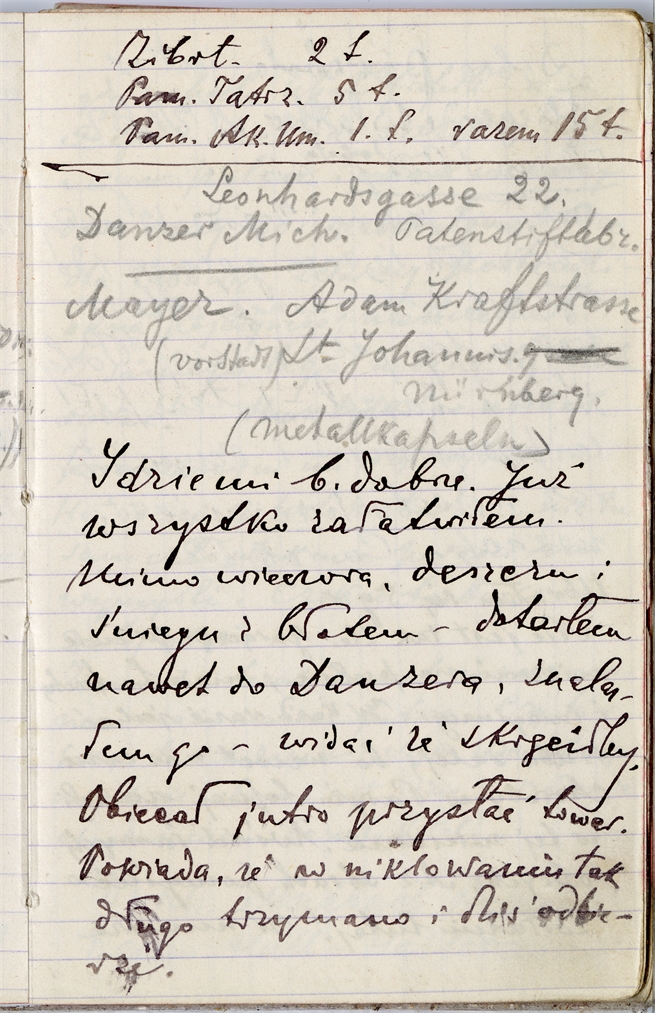 Zibrt. 2 f.
Pam. Tatrz. 5 f.
Pam. Ak. Um. 1. f. razem 15 f.
Leonhardsgasse 22.
Danzer Mich. Patenstiftfabr.
Mayer. Adam Kraftstrasse
(vorstadt) St. Johannis.
Nürnberg.
(metallkapseln)
Idzie mi b. dobrze. Już
wszystko załatwiłem.
Mimo wieczora, deszczu i
śniegu z błotem – dotarłem
nawet do Danzera, znalaz-
łem go – widać że
Obiecał jutro przysłać towar.
Powiada, że w niklowaniu tak
długo trzymano i dziś odbie-
rze.